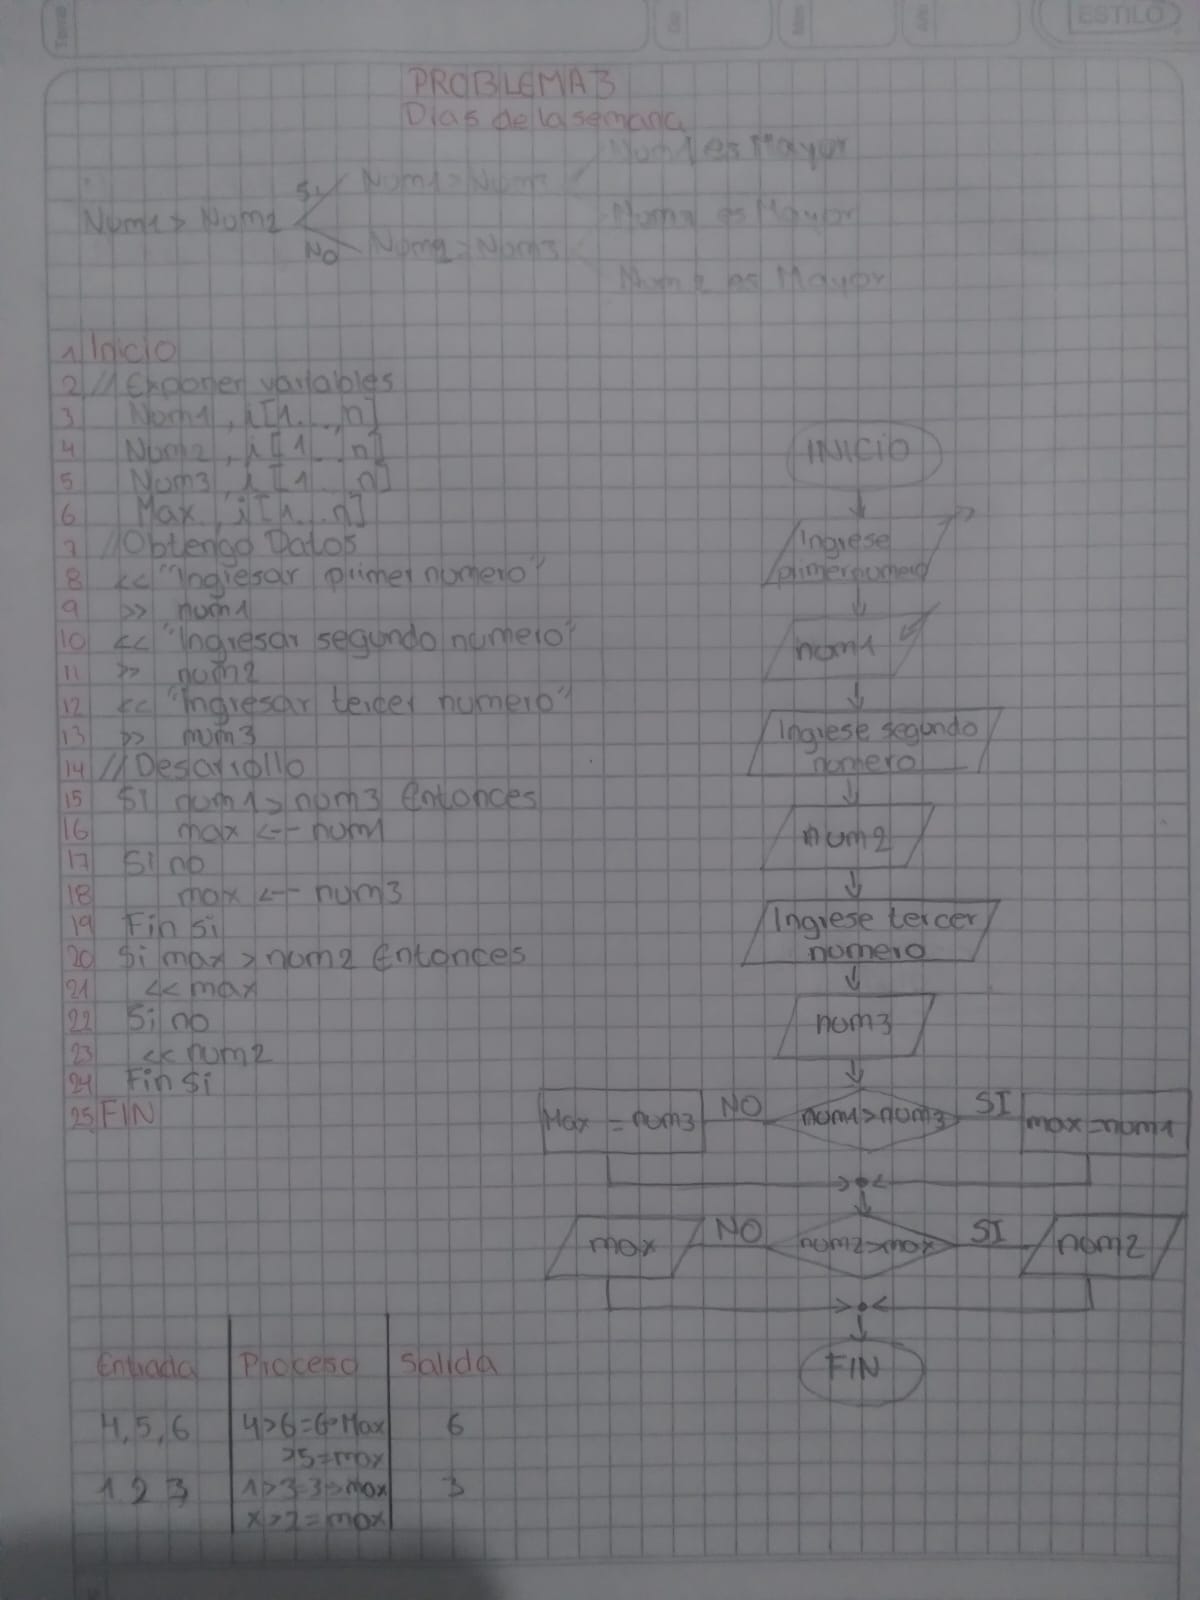 ESTILO
PROBLEMA 3
Dias de la semana
Num1 es Mayor
Si Num1 > Num
Num1 > Num2
es Mayor
No Num2 > Num3
Num 2 es Mayor
1 Inicio
2 // Exponer variables
3 Num1, i [1...n]
4 Num2, i [1...n]
5 Num3, i [1...n]
6 Max, i [1...n]
7 // Obtengo Datos
8 << "Ingresar primer numero"
9 >> num1
10 << "Ingresar segundo numero"
11 >> num2
12 << "Ingresar tercer numero"
13 >> num3
14 // Desarrollo
15 SI num1 > num3 Entonces
16 max <-- num1
17 Si no
18 max <-- num3
19 Fin si
20 Si max > num2 Entonces
21 << max
22 Si no
23 << num2
24 Fin Si
25 FIN
INICIO
Ingrese
primer numero
num1
Ingrese segundo
numero
num2
Ingrese tercer
numero
num3
Max = num3 NO num1>num3 SI max=num1
max NO num2>max SI num2
FIN
Entrada Proceso Salida
4, 5, 6 4>6=6>Max 6
>5=max
1 2 3 1>3=3>max 3
x>2=max